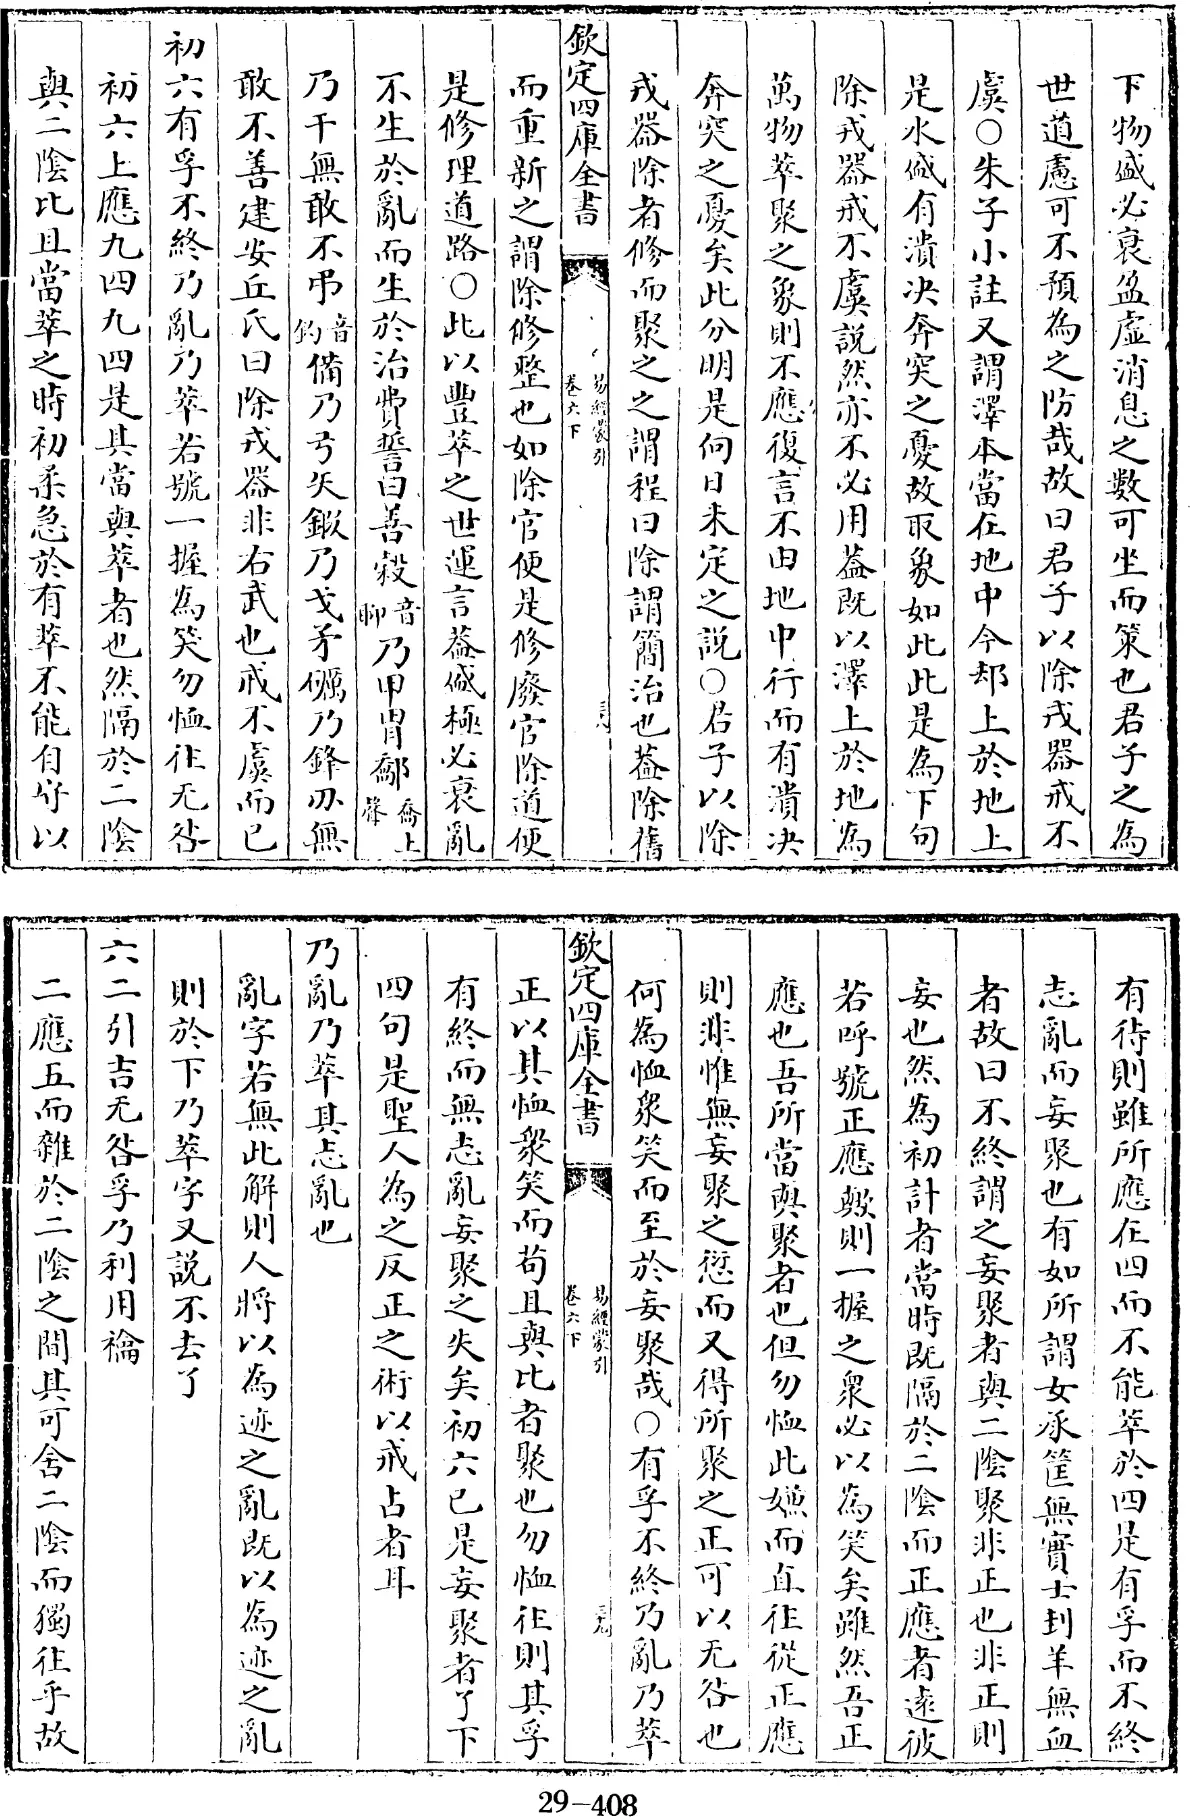 下物盛必衰盈虛消息之數可坐而策也君子之為
世道慮可不預為之防哉故曰君子以除戎器戒不
虞○朱子小註又謂澤本當在地中今却上於地上
是水盛有潰決奔突之憂故取象如此此是為下句
除戎器戒不虞說然亦不必用蓋既以澤上於地為
萬物萃聚之象則不應復言不由地中行而有潰决
奔突之憂矣此分明是向日未定之說○君子以除
戎器除者修而聚之之謂程曰除謂簡治也蓋除舊
欽定四庫全書
易經蒙引
卷六下
而重新之謂除修整也如除官便是修廢官除道便
是修理道路○此以豐萃之世運言蓋盛極必衰亂
不生於亂而生於治費誓曰善敹音聊乃甲胄敿喬上聲
乃干無敢不弔音釣備乃弓矢鍜乃戈矛礪乃鋒刃無
敢不善建安丘氏曰除戎器非右武也戒不虞而已
初六有孚不終乃亂乃萃若號一握為笑勿恤往无咎
初六上應九四九四是其當與萃者也然隔於二陰
與二陰比且當萃之時初柔急於有萃不能自守以
有待則雖所應在四而不能萃於四是有孚而不終
志亂而妄聚也有如所謂女承筐無實士刲羊無血
者故曰不終謂之妄聚者與二陰聚非正也非正則
妄也然為初計者當時既隔於二陰而正應者遠彼
若呼號正應輙則一握之衆必以為笑矣雖然吾正
應也吾所當與聚者也但勿恤此嫌而直往從正應
則非惟無妄聚之愆而又得所聚之正可以无咎也
何為恤衆笑而至於妄聚哉○有孚不終乃亂乃萃
欽定四庫全書
易經蒙引
卷六下
三九
正以其恤衆笑而苟且與比者聚也勿恤往則其孚
有終而無志亂妄聚之失矣初六已是妄聚者了下
四句是聖人為之反正之術以戒占者耳
乃亂乃萃其志亂也
亂字若無此解則人將以為迹之亂既以為迹之亂
則於下乃萃字又說不去了
六二引吉无咎孚乃利用禴
二應五而雜於二陰之間其可舍二陰而獨往乎故
29-408